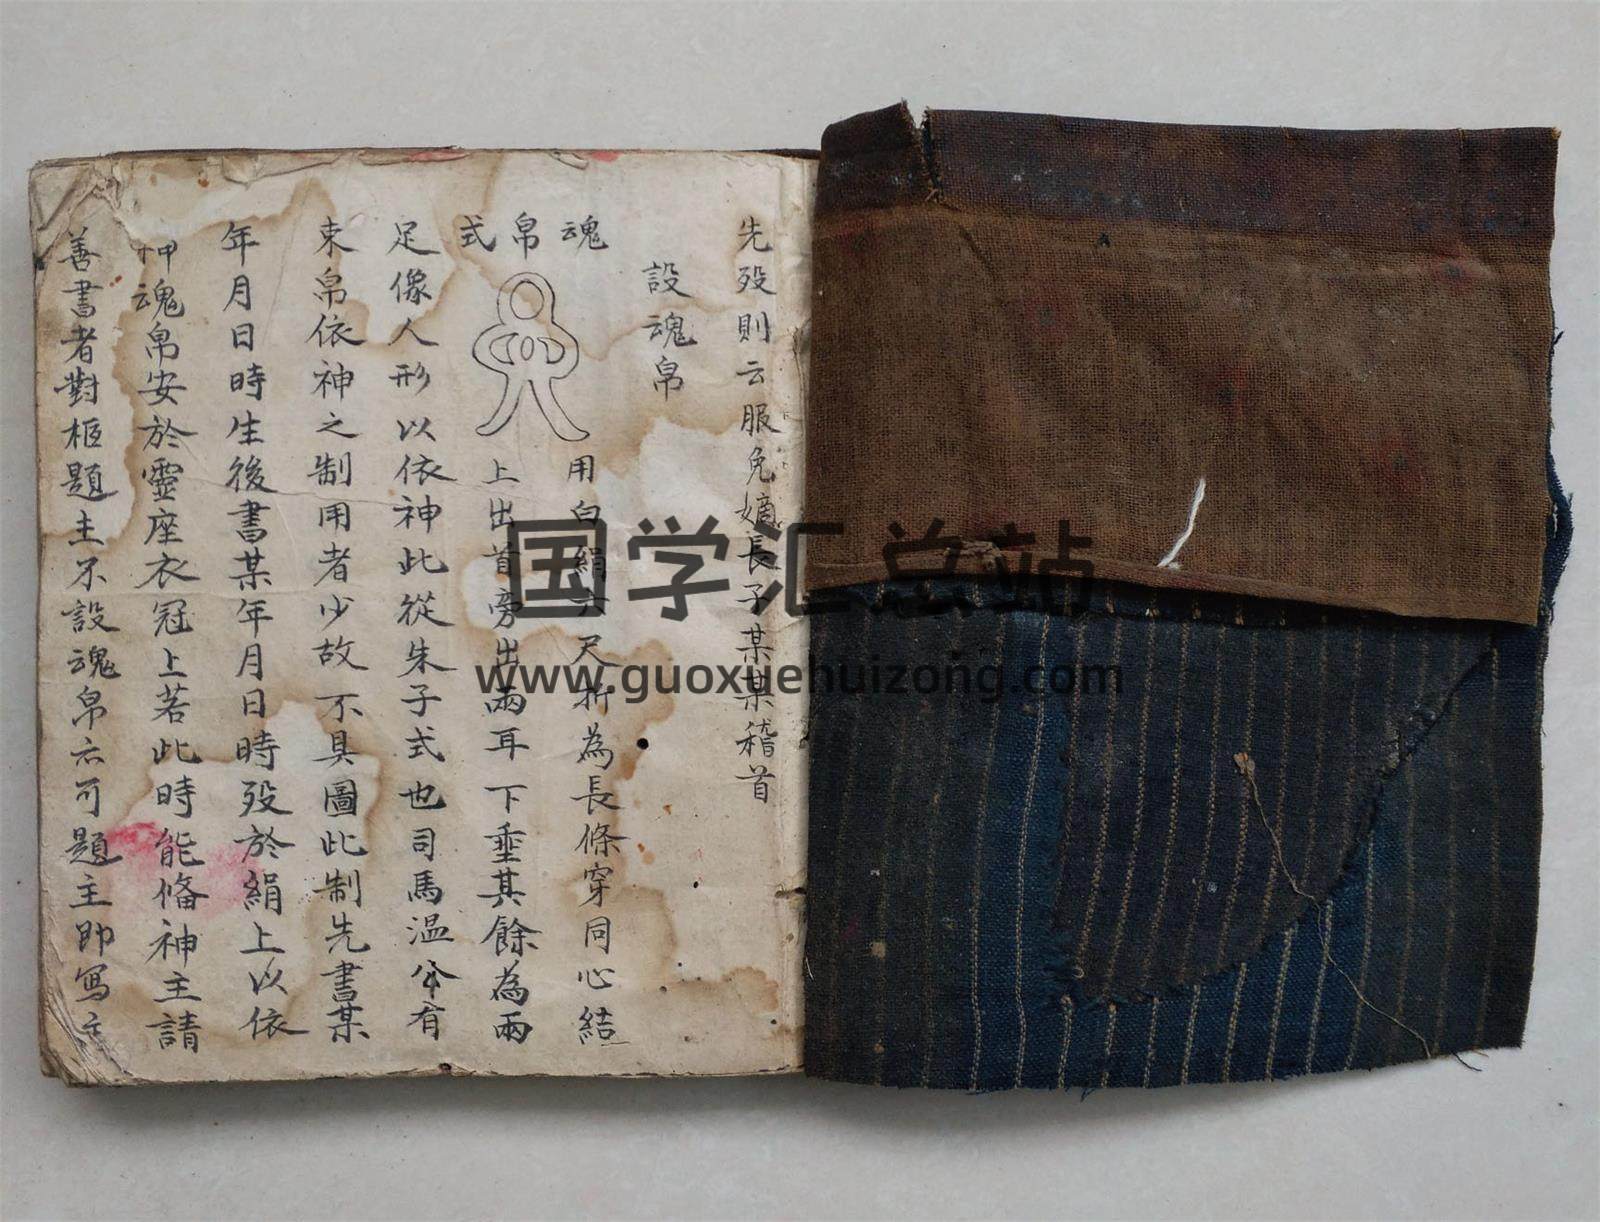 先歿則云服免嫡長子某某稽首
設魂帛
魂帛式
用白絹 尺折為長條穿同心結
上出首旁出兩耳下垂其餘為兩
足像人形以依神此從朱子式也司馬温公有
束帛依神之制用者少故不具圖此制先書某
年月日時生後書某年月日時歿於絹上以依
神魂帛安於靈座衣冠上若此時能俻神主請
善書者對柩題主不設魂帛亦可題主即寫主
国学汇总站
www.guoxuehuizong.com